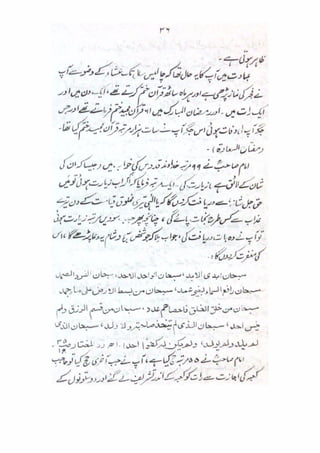 ۳۶
ظاہر ہوتی ہے۔
عبادت میں آپ کا یہ حال تھا کہ چالیس سال تک عشاء کے وضو سے آپ
نے فجر کی نماز پڑھی ہے اور ہر ماہ ساٹھ قرآن ختم کرتے تھے، ایک دن میں اور
ایک رات میں۔ اور رمضان المبارک میں ۶۱ قرآن مجید ختم فرماتے تھے اور جس
جگہ آپ کی وفات ہوئی اس جگہ آپ نے سات ہزار مرتبہ قرآن مجید ختم کیا تھا۔
(مفتاح السعادۃ)
امام صاحبؒ نے ۹۹ مرتبہ خداوند قدوس کی خواب میں (جیسا کہ ان کی
شان کے لائق ہے) زیارت کی۔ ایک مرتبہ فرمایا کہ اگر اب زیارت ہوئی تو میں
حق جل شانہٗ سے دریافت کروں گا کہ یا الٰہی تیری مخلوق قیامت کے دن تیرے
عذاب سے کس طرح نجات پائے گی، چنانچہ پھر جب سوویں مرتبہ زیارت ہوئی
تو آپ نے وہ بات دریافت کی، جواب ملا کہ جو شخص صبح و شام یہ دعا پڑھے گا، اس
کی مغفرت کر دوں گا:
سبحان ابدی الابد، سبحان الواحد الاحد، سبحان الفرد الصمد
سبحان رافع السماء بغیر عمد، سبحان من بسط الارض علی ماء جمد
سبحان من خلق الخلق فاحصاهم عدد، سبحان من قسم الرزق ولم
ینس احد، سبحان الذی لم یتخذ صاحبۃ ولا ولد، سبحان الذی
لم یلد ولم یولد، ولم یکن لہ کفوا احد! اھ (در المختار
امام صاحبؒ نے ۵۵ مرتبہ حج کیا ہے، آپ نے جب آخری حج کیا تو حاجب
کعبہ کی اجازت سے رات کو کعبہ کے اندر تشریف لے گئے اور دو ستونوں کے